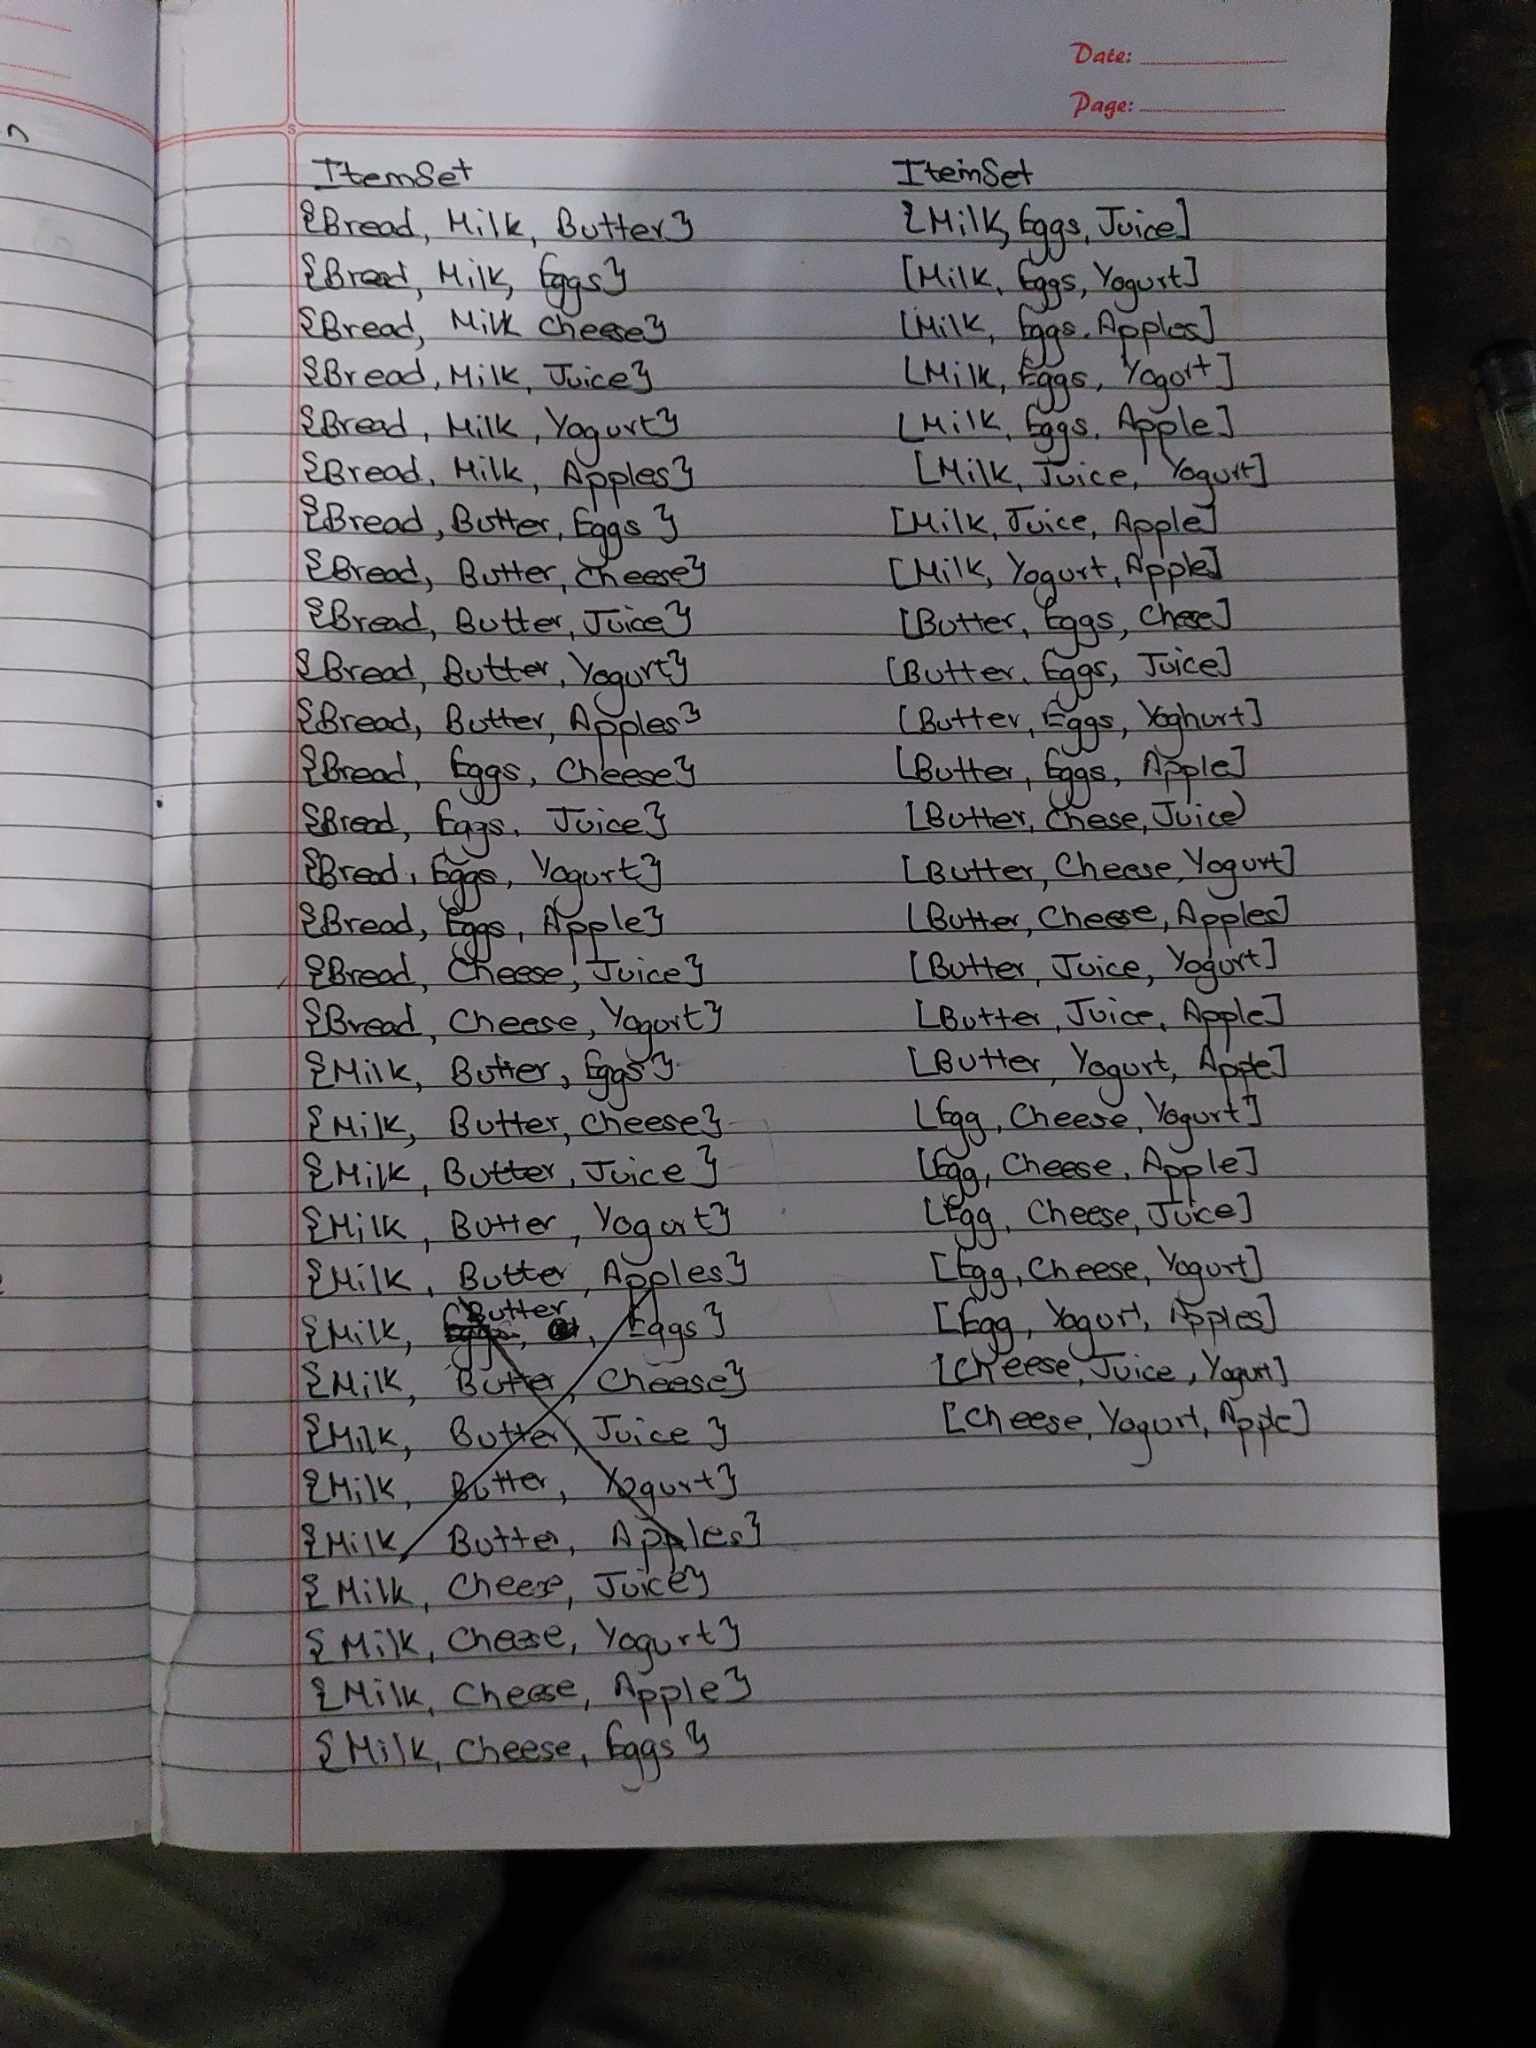 Date:
Page:
ItemSet
{Bread, Milk, Butter}
{Bread, Milk, Eggs}
{Bread, Milk Cheese}
{Bread, Milk, Juice}
{Bread, Milk, Yogurt}
{Bread, Milk, Apples}
{Bread, Butter, Eggs}
{Bread, Butter, Cheese}
{Bread, Butter, Juice}
{Bread, Butter, Yogurt}
{Bread, Butter, Apples}
{Bread, Eggs, Cheese}
{Bread, Eggs, Juice}
{Bread, Eggs, Yogurt}
{Bread, Eggs, Apple}
{Bread, Cheese, Juice}
{Bread, Cheese, Yogurt}
{Milk, Butter, Eggs}
{Milk, Butter, Cheese}
{Milk, Butter, Juice}
{Milk, Butter, Yogurt}
{Milk, Butter, Apples}
{Milk, Butter, Eggs}
{Milk, Butter, Cheese}
{Milk, Butter, Juice}
{Milk, Butter, Yogurt}
{Milk, Butter, Apples}
{Milk, Cheese, Juice}
{Milk, Cheese, Yogurt}
{Milk, Cheese, Apple}
{Milk, Cheese, Eggs}
ItemSet
{Milk, Eggs, Juice]
[Milk, Eggs, Yogurt]
[Milk, Eggs, Apples]
[Milk, Eggs, Yogort]
[Milk, Eggs, Apple]
[Milk, Juice, Yogurt]
[Milk, Juice, Apple]
[Milk, Yogurt, Apple]
[Butter, Eggs, Chese]
[Butter, Eggs, Juice]
[Butter, Eggs, Yoghurt]
[Butter, Eggs, Apple]
[Butter, Chese, Juice)
[Butter, Cheese, Yogurt]
[Butter, Cheese, Apples]
[Butter, Juice, Yogurt]
[Butter, Juice, Apple]
[Butter, Yogurt, Apple]
[Egg, Cheese, Yogurt]
[Egg, Cheese, Apple]
[Egg, Cheese, Juice]
[Egg, Cheese, Yogurt]
[Egg, Yogurt, Apples]
[Cheese, Juice, Yogurt]
[Cheese, Yogurt, Apple]